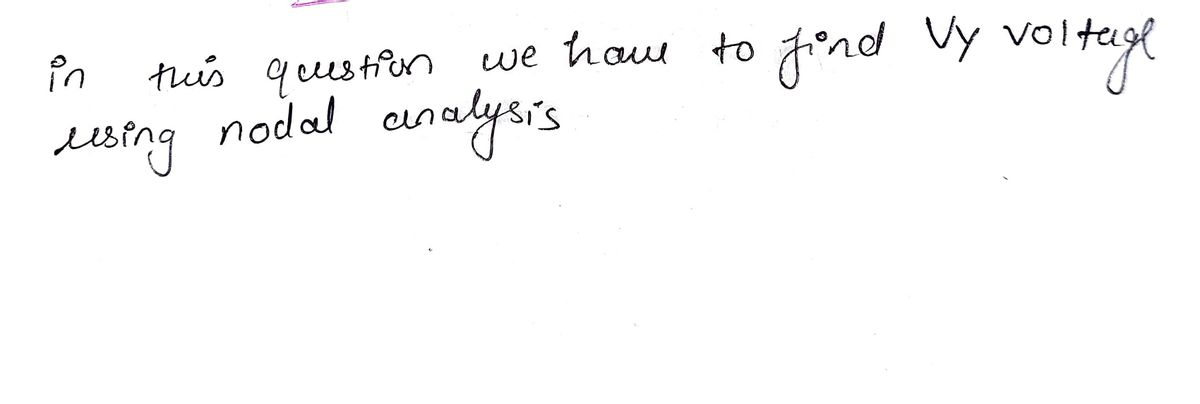 in this question we have to find Vy voltage
using nodal analysis